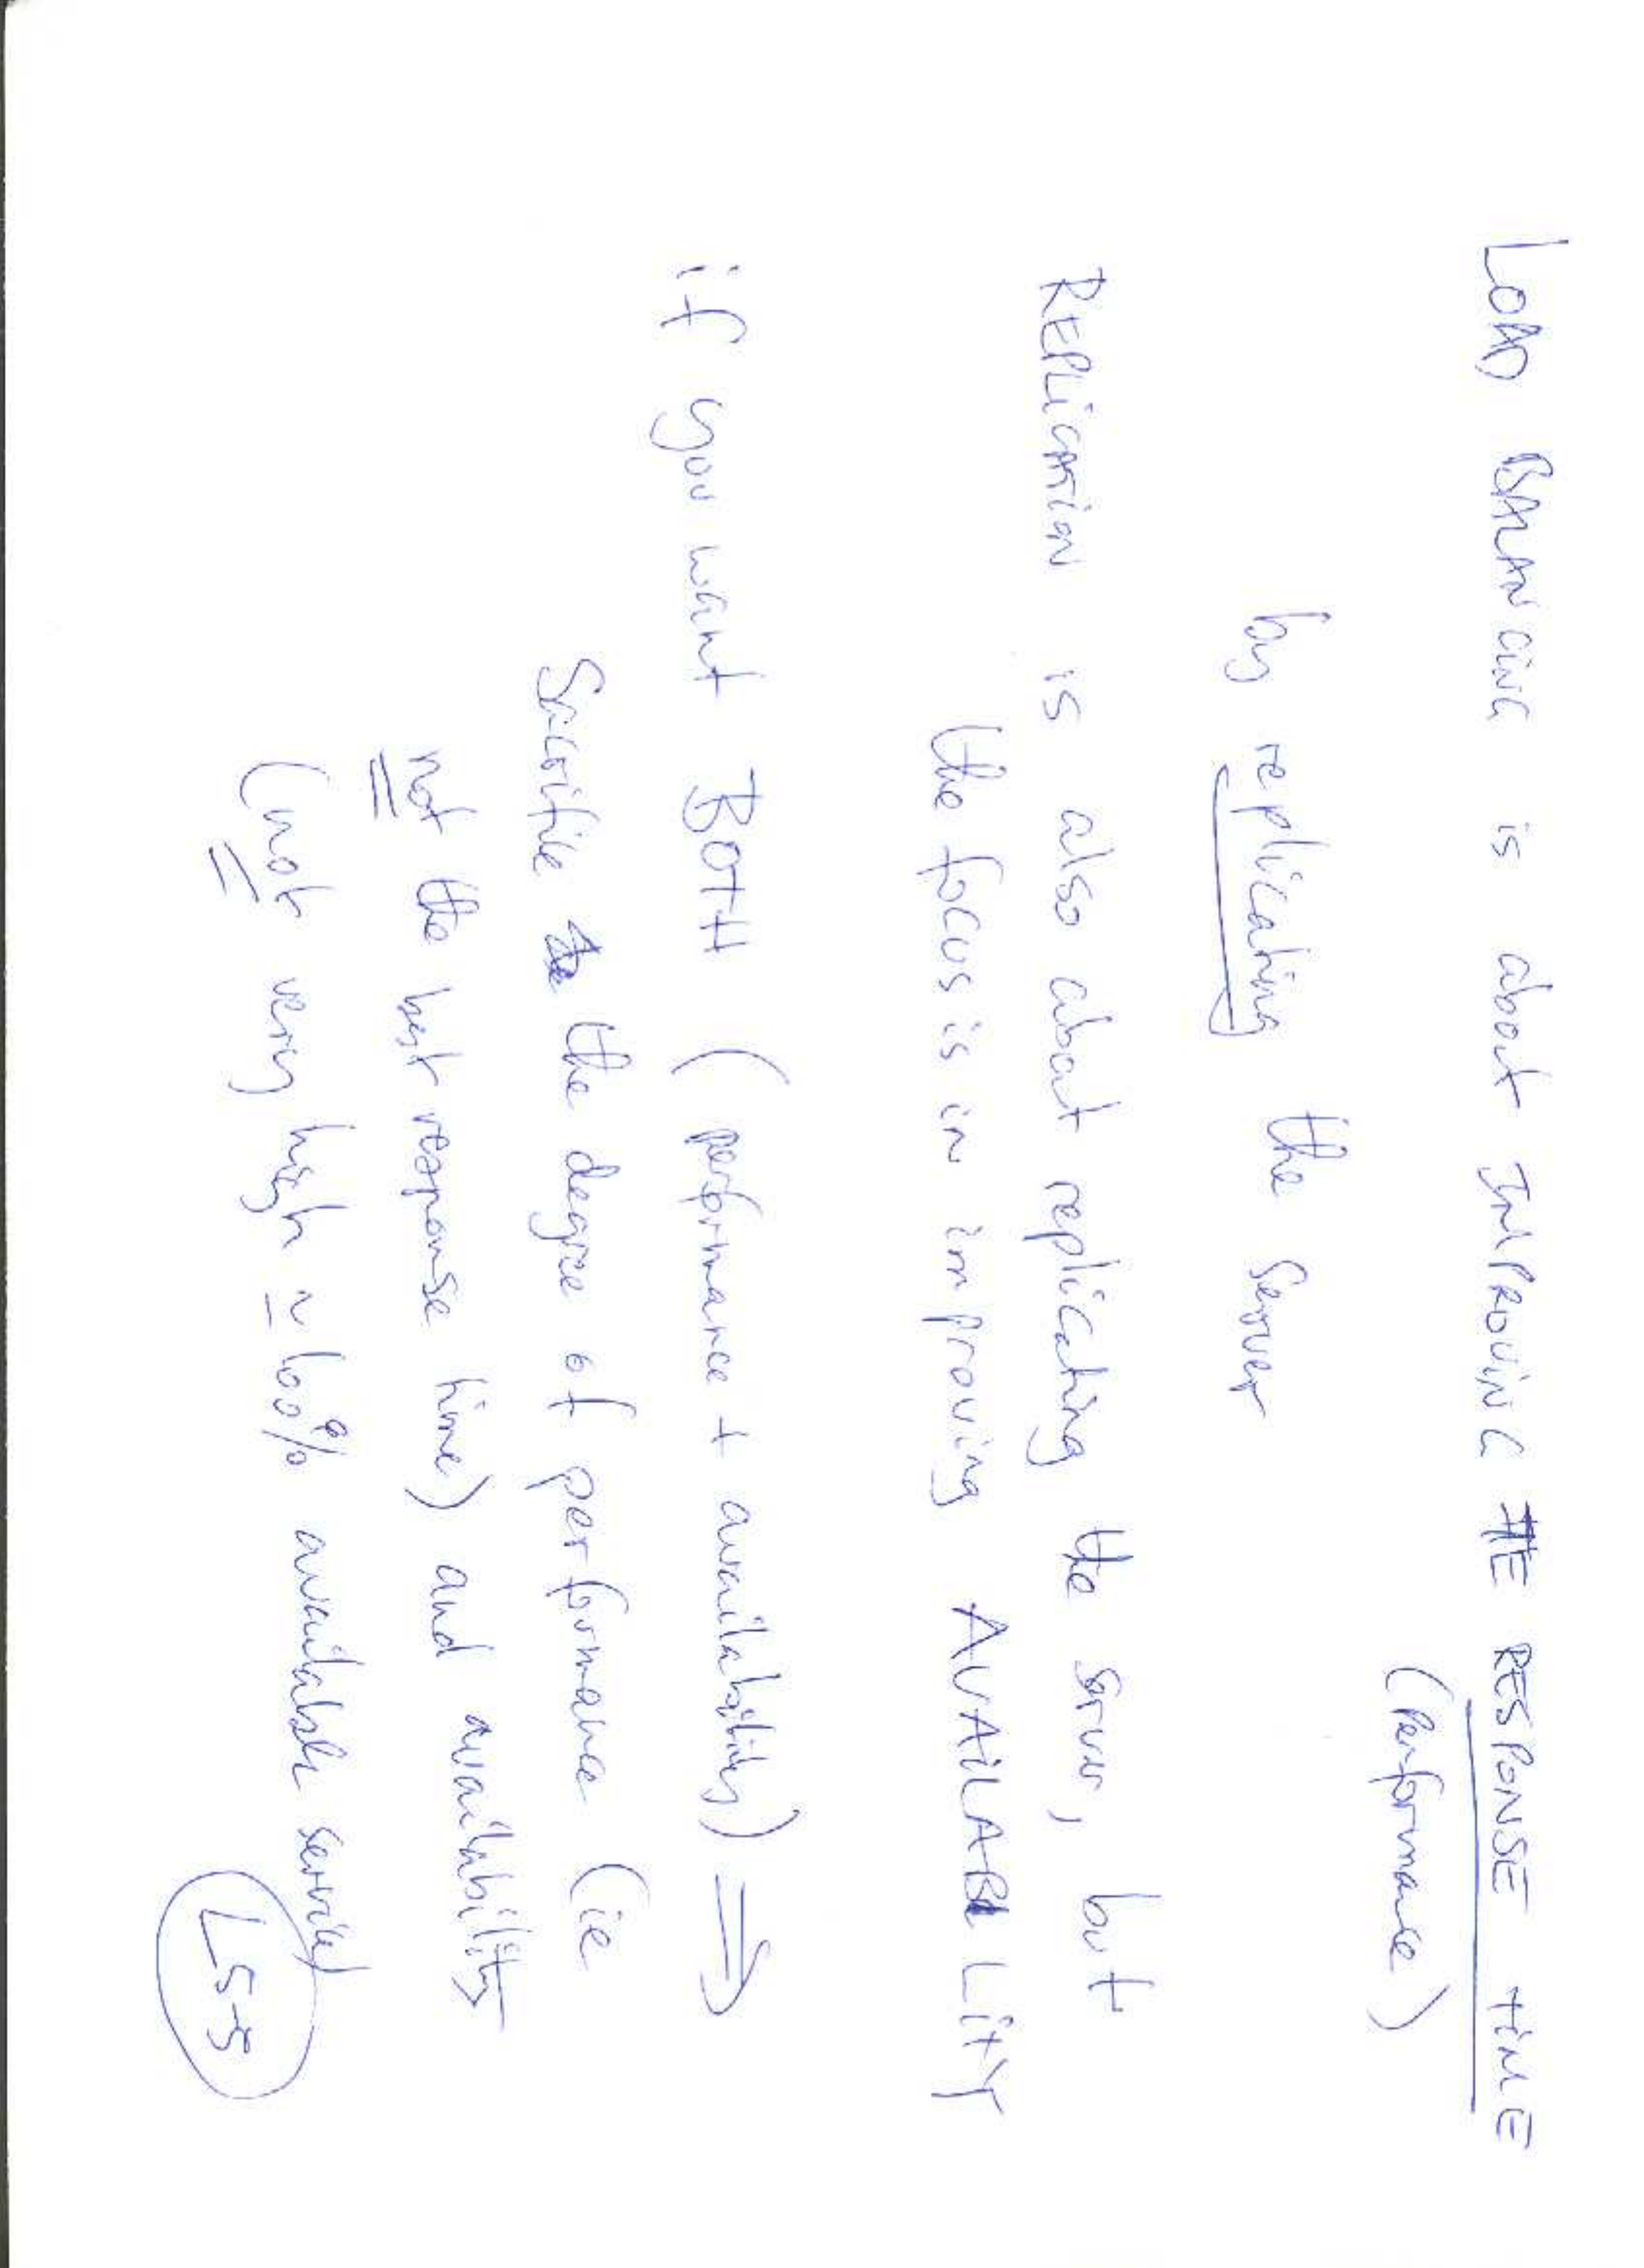 LOAD BALANCING is about IMPROVING THE RESPONSE TIME
(Performance)
by replicating the server
REPLICATION is also about replicating the server, but
the focus is in improving AVAILABILITY
if you want BOTH (performance + availability) ⇒
Sacrifice the degree of performance (ie
not the best response time) and availability
(not very high ≃ 100% available service)
L5-5